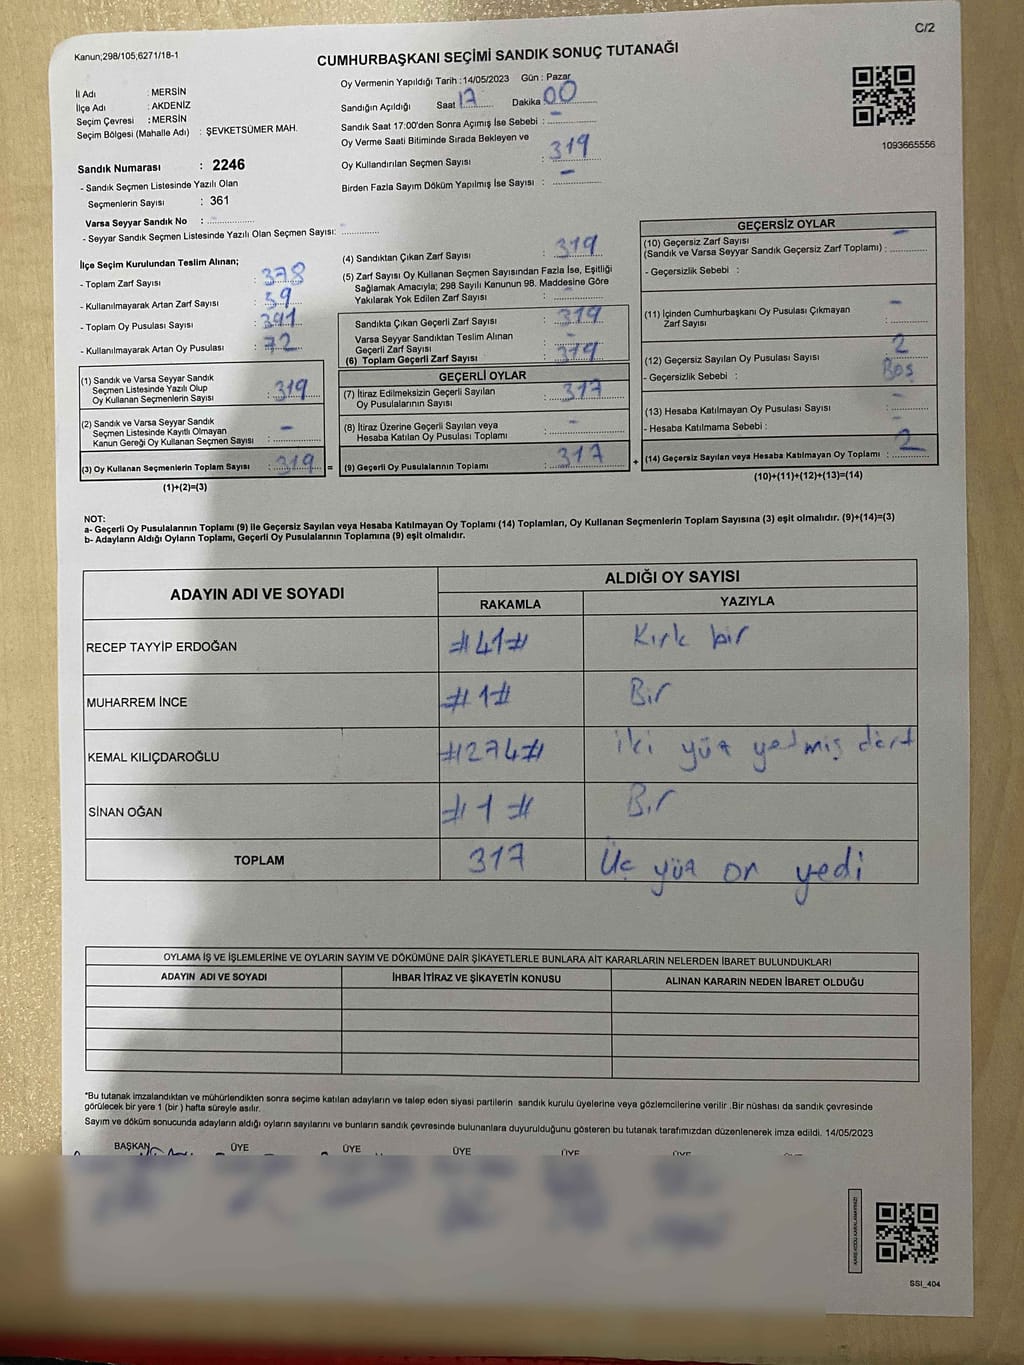 C/2
Kanun;298/105;6271/18-1
CUMHURBAŞKANI SEÇİMİ SANDIK SONUÇ TUTANAĞI
İl Adı : MERSİN
İlçe Adı : AKDENİZ
Seçim Çevresi : MERSİN
Seçim Bölgesi (Mahalle Adı) : ŞEVKETSÜMER MAH.
Sandık Numarası : 2246
- Sandık Seçmen Listesinde Yazılı Olan
Seçmenlerin Sayısı : 361
Varsa Seyyar Sandık No :
- Seyyar Sandık Seçmen Listesinde Yazılı Olan Seçmen Sayısı:
Oy Vermenin Yapıldığı Tarih : 14/05/2023 Gün : Pazar
Sandığın Açıldığı Saat 17 Dakika 00
Sandık Saat 17:00'den Sonra Açımış İse Sebebi : -
Oy Verme Saati Bitiminde Sırada Bekleyen ve
Oy Kullandırılan Seçmen Sayısı : 319
Birden Fazla Sayım Döküm Yapılmış İse Sayısı : -
1093665556
İlçe Seçim Kurulundan Teslim Alınan;
- Toplam Zarf Sayısı : 378
- Kullanılmayarak Artan Zarf Sayısı : 59
- Toplam Oy Pusulası Sayısı : 391
- Kullanılmayarak Artan Oy Pusulası : 72
(1) Sandık ve Varsa Seyyar Sandık
Seçmen Listesinde Yazılı Olup
Oy Kullanan Seçmenlerin Sayısı : 319
(2) Sandık ve Varsa Seyyar Sandık
Seçmen Listesinde Kayıtlı Olmayan
Kanun Gereği Oy Kullanan Seçmen Sayısı : -
(3) Oy Kullanan Seçmenlerin Toplam Sayısı : 319 =
(1)+(2)=(3)
(4) Sandıktan Çıkan Zarf Sayısı : 319
(5) Zarf Sayısı Oy Kullanan Seçmen Sayısından Fazla İse, Eşitliği
Sağlamak Amacıyla; 298 Sayılı Kanunun 98. Maddesine Göre
Yakılarak Yok Edilen Zarf Sayısı : -
Sandıkta Çıkan Geçerli Zarf Sayısı : 319
Varsa Seyyar Sandıktan Teslim Alınan
Geçerli Zarf Sayısı : -
(6) Toplam Geçerli Zarf Sayısı : 319
GEÇERLİ OYLAR
(7) İtiraz Edilmeksizin Geçerli Sayılan
Oy Pusulalarının Sayısı : 317
(8) İtiraz Üzerine Geçerli Sayılan veya
Hesaba Katılan Oy Pusulası Toplamı : -
(9) Geçerli Oy Pusulalarının Toplamı : 317 +
GEÇERSİZ OYLAR
(10) Geçersiz Zarf Sayısı
(Sandık ve Varsa Seyyar Sandık Geçersiz Zarf Toplamı) : -
- Geçersizlik Sebebi :
(11) İçinden Cumhurbaşkanı Oy Pusulası Çıkmayan
Zarf Sayısı : -
(12) Geçersiz Sayılan Oy Pusulası Sayısı : 2
- Geçersizlik Sebebi : Boş
(13) Hesaba Katılmayan Oy Pusulası Sayısı : -
- Hesaba Katılmama Sebebi : -
(14) Geçersiz Sayılan veya Hesaba Katılmayan Oy Toplamı : 2
(10)+(11)+(12)+(13)=(14)
NOT:
a- Geçerli Oy Pusulalarının Toplamı (9) ile Geçersiz Sayılan veya Hesaba Katılmayan Oy Toplamı (14) Toplamları, Oy Kullanan Seçmenlerin Toplam Sayısına (3) eşit olmalıdır. (9)+(14)=(3)
b- Adayların Aldığı Oyların Toplamı, Geçerli Oy Pusulalarının Toplamına (9) eşit olmalıdır.
ADAYIN ADI VE SOYADI ALDIĞI OY SAYISI
RAKAMLA YAZIYLA
RECEP TAYYİP ERDOĞAN #41# Kırk bir
MUHARREM İNCE #1# Bir
KEMAL KILIÇDAROĞLU #274# iki yüz yetmiş dört
SİNAN OĞAN #1# Bir
TOPLAM 317 Üç yüz on yedi
OYLAMA İŞ VE İŞLEMLERİNE VE OYLARIN SAYIM VE DÖKÜMÜNE DAİR ŞİKAYETLERLE BUNLARA AİT KARARLARIN NELERDEN İBARET BULUNDUKLARI
ADAYIN ADI VE SOYADI İHBAR İTİRAZ VE ŞİKAYETİN KONUSU ALINAN KARARIN NEDEN İBARET OLDUĞU
*Bu tutanak imzalandıktan ve mühürlendikten sonra seçime katılan adayların ve talep eden siyasi partilerin sandık kurulu üyelerine veya gözlemcilerine verilir .Bir nüshası da sandık çevresinde
görülecek bir yere 1 (bir ) hafta süreyle asılır.
Sayım ve döküm sonucunda adayların aldığı oyların sayılarını ve bunların sandık çevresinde bulunanlara duyurulduğunu gösteren bu tutanak tarafımızdan düzenlenerek imza edildi. 14/05/2023
BAŞKAN ÜYE ÜYE ÜYE ÜYE ÜYE
SSI_404